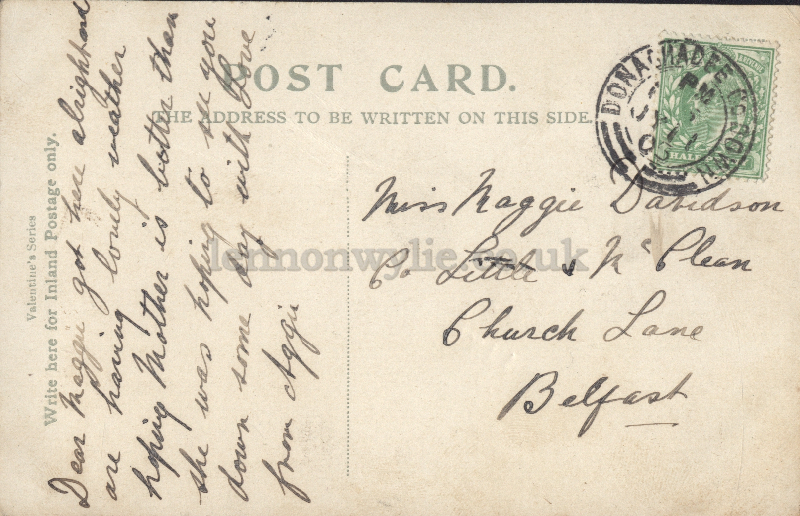 POST CARD.
THE ADDRESS TO BE WRITTEN ON THIS SIDE.
Valentine's Series
Write here for Inland Postage only.
Dear Maggie got here alright and
are having lovely weather
hoping Mother is better than
she was hoping to see you
down some day with love.
from Aggie
Miss Maggie Davidson
Co Little & McClean
Church Lane
Belfast
DONAGHADEE CO. DOWN
PM
JY 11
HALF
lennonwylie.co.uk